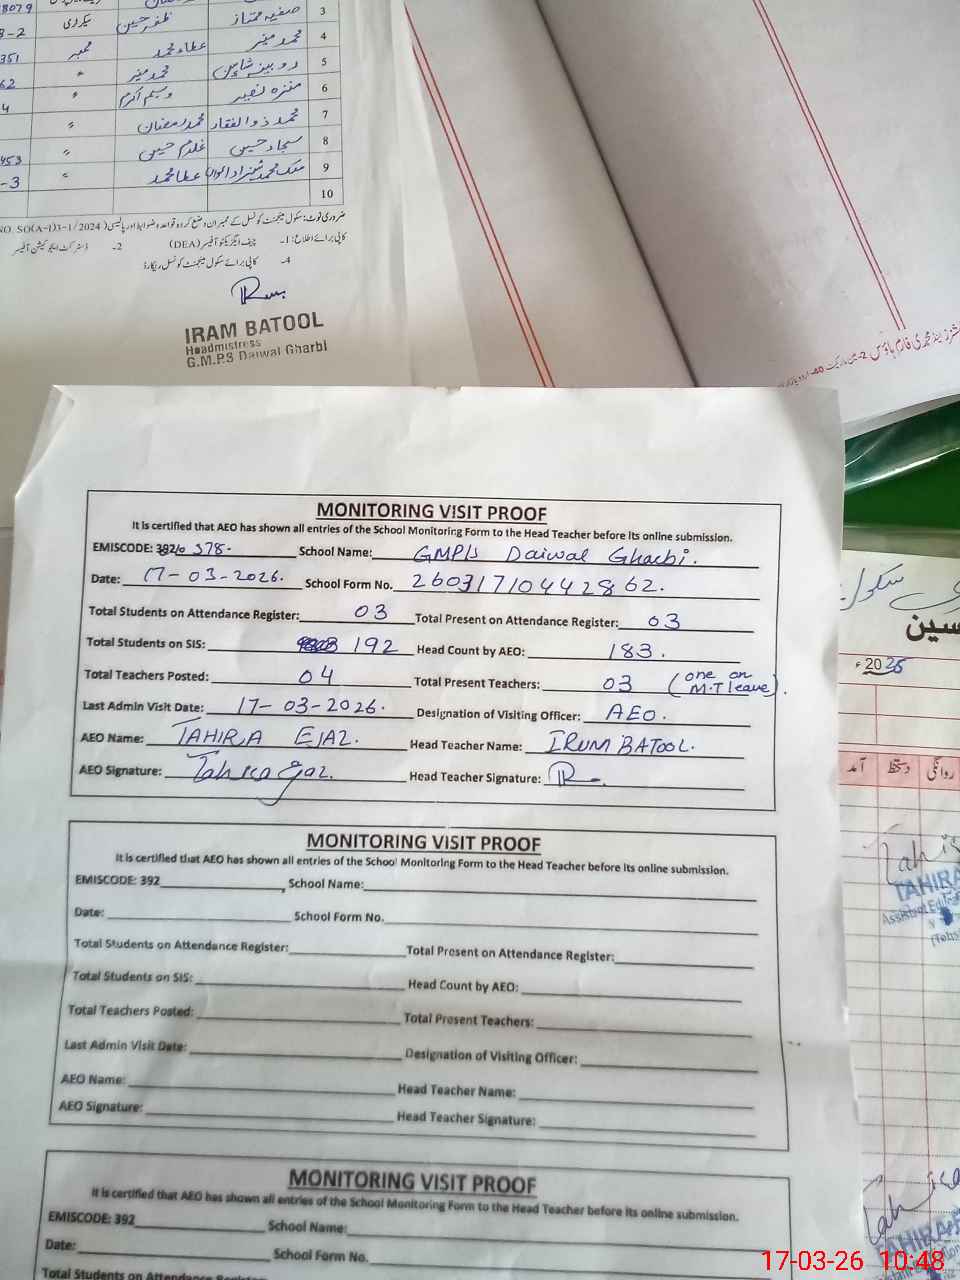 3 صفیہ ممتاز ظفر حسین سیکرٹری
4 محمد منیر عطا محمد ممبر
5 روبینہ شاہین محمد منیر 〃
6 منزہ نصیر وسیم اکرم 〃
7 محمد ذوالفقار محمد رمضان 〃
8 سجاد حسین غلام حسین 〃
9 عطا محمد 〃
10
ضروری نوٹ: سکول مینجمنٹ کونسل کے ممبران وضع کردہ قواعد و ضوابط اور پالیسی (NO. SO(A-1)3-1/2024
کاپی برائے اطلاع: 1۔ چیف ایگزیکٹو آفیسر (DEA) 2۔ ڈسٹرکٹ ایجوکیشن آفیسر
4۔ کاپی برائے سکول مینجمنٹ کونسل ریکارڈ
IRAM BATOOL
Headmistress
G.M.P.S Daiwal Gharbi
MONITORING VISIT PROOF
It is certified that AEO has shown all entries of the School Monitoring Form to the Head Teacher before its online submission.
EMISCODE: 392/0 378. School Name: GMP/S Daiwal Gharbi.
Date: 17-03-2026. School Form No. 260317104428862.
Total Students on Attendance Register: 03 Total Present on Attendance Register: 03
Total Students on SIS: 192 Head Count by AEO: 183.
Total Teachers Posted: 04 Total Present Teachers: 03 (one on M.T leave).
Last Admin Visit Date: 17-03-2026. Designation of Visiting Officer: AEO.
AEO Name: TAHIRA EJAZ. Head Teacher Name: IRUM BATOOL.
AEO Signature: Tahira Ejaz. Head Teacher Signature:
MONITORING VISIT PROOF
It is certified that AEO has shown all entries of the School Monitoring Form to the Head Teacher before its online submission.
EMISCODE: 392 School Name:
Date: School Form No.
Total Students on Attendance Register: Total Present on Attendance Register:
Total Students on SIS: Head Count by AEO:
Total Teachers Posted: Total Present Teachers:
Last Admin Visit Date: Designation of Visiting Officer:
AEO Name: Head Teacher Name:
AEO Signature: Head Teacher Signature:
MONITORING VISIT PROOF
It is certified that AEO has shown all entries of the School Monitoring Form to the Head Teacher before its online submission.
EMISCODE: 392 School Name:
Date: School Form No.
Total Students on Attendance Register:
سکول
2025ء
آمد دستخط روانگی
TAHIRA
TAHIRA
17-03-26 10:48